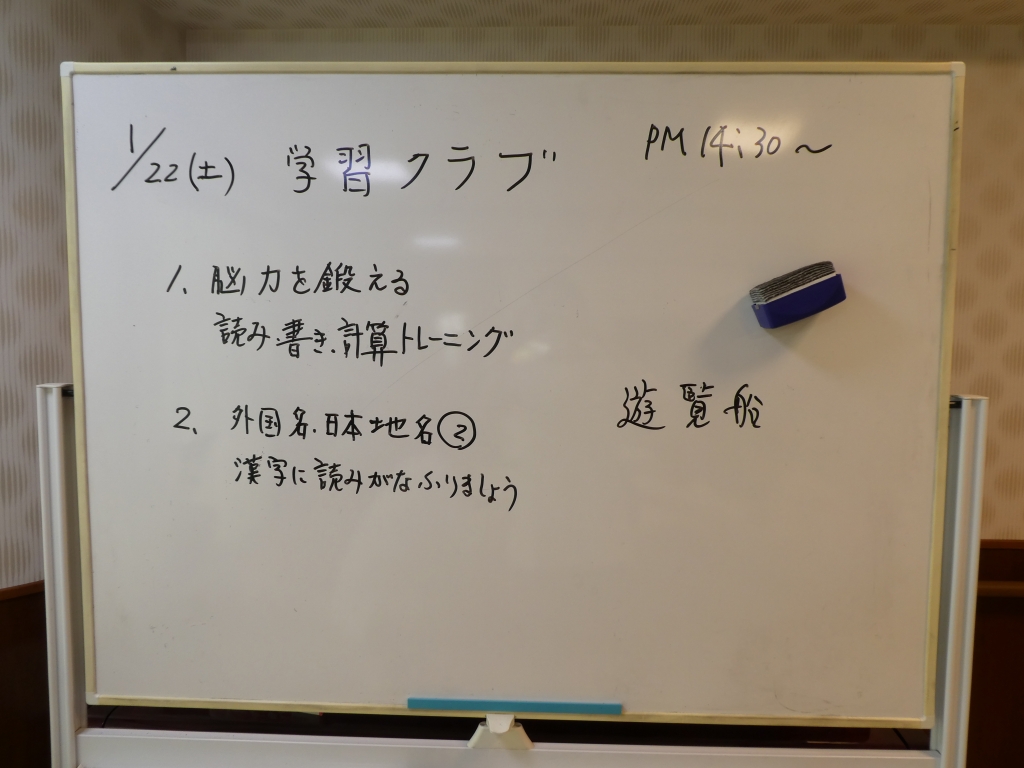 1/22(土) 学習クラブ PM 14:30～
1、脳力を鍛える
読み書き、計算トレーニング
2、外国名、日本地名②
漢字に読みがなふりましょう
遊覧船